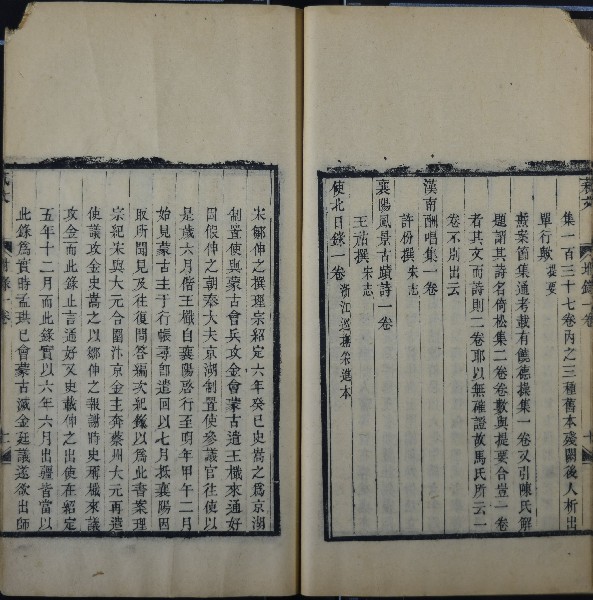 集一百三十七卷內之三種舊本殘闕後人析出
單行歟 提要
熹案節集通考載有饒德操集一卷又引陳氏解
題謂其詩名倚松集二卷卷數與提要合豈一卷
者其文而詩則二卷耶以無確證故馬氏所云一
卷不別出云
漢南酬唱集一卷
許份撰 宋志
襄陽風景古蹟詩一卷
王祜撰 宋志
使北日錄一卷 浙江巡撫采進本
宋鄒伸之撰理宗紹定六年癸巳史嵩之爲京湖
制置使與蒙古會兵攻金會蒙古遣王檝來通好
因假伸之朝奉大夫京湖制置使參議官往使以
是歲六月偕王檝自襄陽啓行至明年甲午二月
始見蒙古主于行帳尋卽遣回以七月抵襄陽因
取所聞見及往復問答編次紀錄以爲此書案理
宗紀宋與大元合圍汴京金主奔蔡州大元再遣
使議攻金史嵩之以鄒伸之報謝時史稱檝來議
攻金而此錄止言通好又史載伸之出使在紹定
五年十二月而此錄實以六年六月出疆皆當以
此錄爲實時孟珙已會蒙古滅金廷議遂欲出師